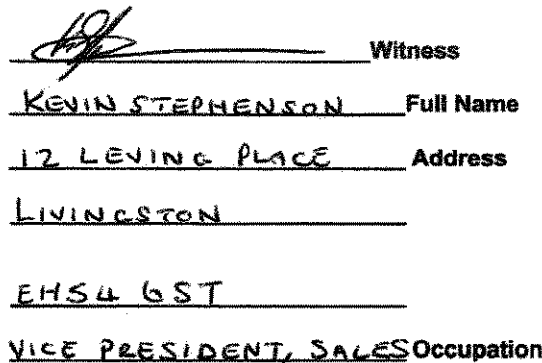 Witness
KEVIN STEPHENSON Full Name
12 LEVING PLACE Address
LIVINGSTON
EH54 6ST
VICE PRESIDENT, SALES Occupation